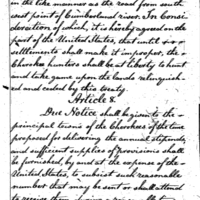 in the like manner as the road from south
west point of Cumberland river. In Consi
deration of which, it is hereby agreed on the
part of the United States, that until set=
tlements shall make it improper, the
Cherokee hunters shall be at liberty to hunt
and take game upon the lands relinquish-
ed and ceded by this treaty.
Article 8.
Due Notice shall be given to the
principal towns of the Cherokees of the time
proposed for delivering the annual stipends,
and sufficient supplies of provisions shall
be furnished, by and at the expense of the
United States, to subsist such reasonable
number that may be sent or shall attend
to receive them during a